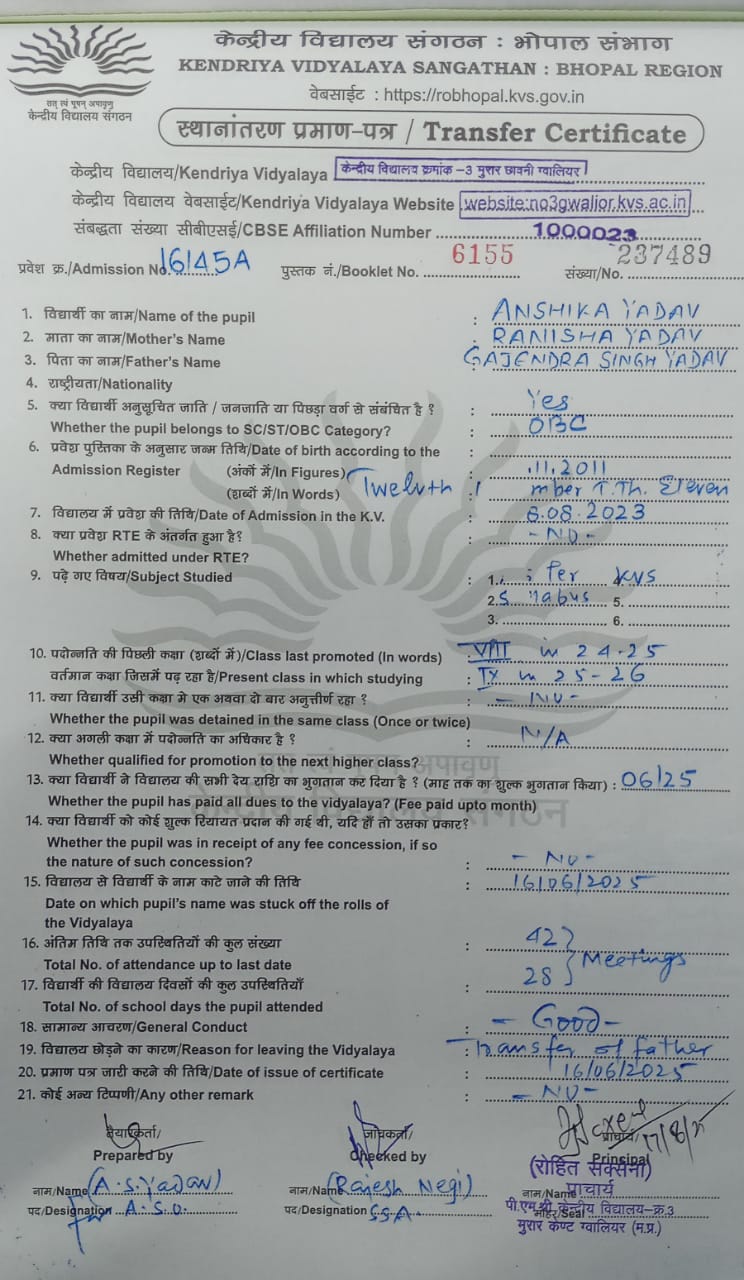 केन्द्रीय विद्यालय संगठन : भोपाल संभाग
KENDRIYA VIDYALAYA SANGATHAN : BHOPAL REGION
वेबसाईट : https://robhopal.kvs.gov.in
केन्द्रीय विद्यालय संगठन
स्थानांतरण प्रमाण-पत्र / Transfer Certificate
केन्द्रीय विद्यालय/Kendriya Vidyalaya केन्द्रीय विद्यालय क्रमांक -3 मुरार छावनी ग्वालियर
केन्द्रीय विद्यालय वेबसाईट/Kendriya Vidyalaya Website website:no3gwalior.kvs.ac.in
संबद्धता संख्या सीबीएसई/CBSE Affiliation Number 1000023
प्रवेश क्र./Admission No. 16145A पुस्तक नं./Booklet No. 6155 संख्या/No. 237489
1. विद्यार्थी का नाम/Name of the pupil : ANSHIKA YADAV
2. माता का नाम/Mother's Name : RANISHA YADAV
3. पिता का नाम/Father's Name : GAJENDRA SINGH YADAV
4. राष्ट्रीयता/Nationality
5. क्या विद्यार्थी अनुसूचित जाति / जनजाति या पिछड़ा वर्ग से संबंधित है ? : Yes
Whether the pupil belongs to SC/ST/OBC Category? : OBC
6. प्रवेश पुस्तिका के अनुसार जन्म तिथि/Date of birth according to the :
Admission Register (अंकों में/In Figures) .11.2011
(शब्दों में/In Words) Twelvth mber T.Th. Eleven
7. विद्यालय में प्रवेश की तिथि/Date of Admission in the K.V. : 8.08.2023
8. क्या प्रवेश RTE के अंतर्गत हुआ है? : -NO-
Whether admitted under RTE?
9. पढ़े गए विषय/Subject Studied : 1. Per KVS
2. S nabus 5.
3. 6.
10. पदोन्नति की पिछली कक्षा (शब्दों में)/Class last promoted (In words) : VIII in 24-25
वर्तमान कक्षा जिसमें पढ़ रहा है/Present class in which studying : IX in 25-26
11. क्या विद्यार्थी उसी कक्षा मे एक अथवा दो बार अनुत्तीर्ण रहा ? : - NO -
Whether the pupil was detained in the same class (Once or twice)
12. क्या अगली कक्षा में पदोन्नति का अधिकार है ? : N/A
Whether qualified for promotion to the next higher class?
13. क्या विद्यार्थी ने विद्यालय की सभी देय राशि का भुगतान कर दिया है ? (माह तक का शुल्क भुगतान किया) : 06/25
Whether the pupil has paid all dues to the vidyalaya? (Fee paid upto month)
14. क्या विद्यार्थी को कोई शुल्क रियायत प्रदान की गई थी, यदि हाँ तो उसका प्रकार?
Whether the pupil was in receipt of any fee concession, if so
the nature of such concession? : - NO -
15. विद्यालय से विद्यार्थी के नाम काटे जाने की तिथि : 16/06/2025
Date on which pupil's name was stuck off the rolls of
the Vidyalaya
16. अंतिम तिथि तक उपस्थितियों की कुल संख्या : 42
Total No. of attendance up to last date Meetings
17. विद्यार्थी की विद्यालय दिवसों की कुल उपस्थितियाँ : 28
Total No. of school days the pupil attended
18. सामान्य आचरण/General Conduct : - Good -
19. विद्यालय छोड़ने का कारण/Reason for leaving the Vidyalaya : Transfer of father
20. प्रमाण पत्र जारी करने की तिथि/Date of issue of certificate : 16/06/2025
21. कोई अन्य टिप्पणी/Any other remark : - NO -
तैयारकर्ता/ जाँचकर्ता/ प्राचार्य/
Prepared by Checked by Principal
(रोहित सक्सेना)
नाम/Name (A.S. YADAV) नाम/Name (Rajesh Negi) नाम/Name प्राचार्य
पद/Designation A.S.O. पद/Designation SSA मोहर/Seal पी.एम.श्री केन्द्रीय विद्यालय-क्र.3
मुरार केण्ट ग्वालियर (म.प्र.)